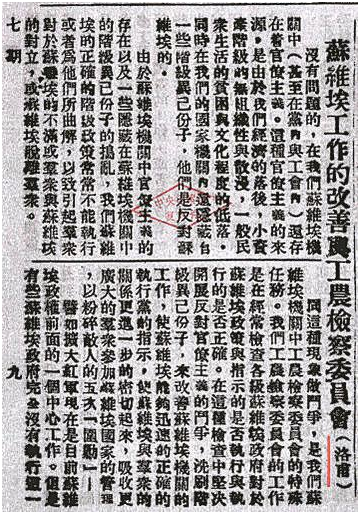 蘇維埃工作的改善與工農檢察委員會(洛甫)
沒有問題的,在我們蘇維埃機
關中(甚至在黨內與工會內)還存
在着官僚主義。這種官僚主義的來
源。是由於我們經濟的落後,小資
產階級的無組織性與散漫,一般民
衆生活的貧困與文化程度的低落。
同時在我們的國家機關內還隱藏着
一些階級異己份子,他們是反對蘇
維埃的。
由於蘇維埃機關中官僚主義的
存在以及一些隱蔽在蘇維埃機關中
的階級異己份子的搗亂,我們蘇維
埃的正確的階級政策常常不能執行
或者爲他們所曲解,以致引起羣衆
對於蘇維埃的不滿或羣衆與蘇維埃
的對立,或蘇維埃脫離羣衆。
同這種現象做鬥爭,是我們蘇
維埃機關中工農檢察委員會的特殊
任務。我們工農檢察委員會的工作
是在經常檢查各級蘇維埃政府對於
蘇維埃政策與指示的是否執行與執
行的是否正確。在這種檢查中堅決
開展反對官僚主義的鬥爭,洗刷階
級異己份子,來改善蘇維埃機關的
工作,使蘇維埃能夠迅速的正確的
執行黨的指示,使蘇維埃與羣衆的
關係更進一步的密切起來,吸收更
廣大的羣衆參加蘇維埃國家的管理
,以粉碎敵人的五次「圍勦」—
譬如擴大紅軍現在是目前蘇維
埃政權前面的一個中心工作。但是
有些蘇維埃政府完全沒有執行這一
七期
九